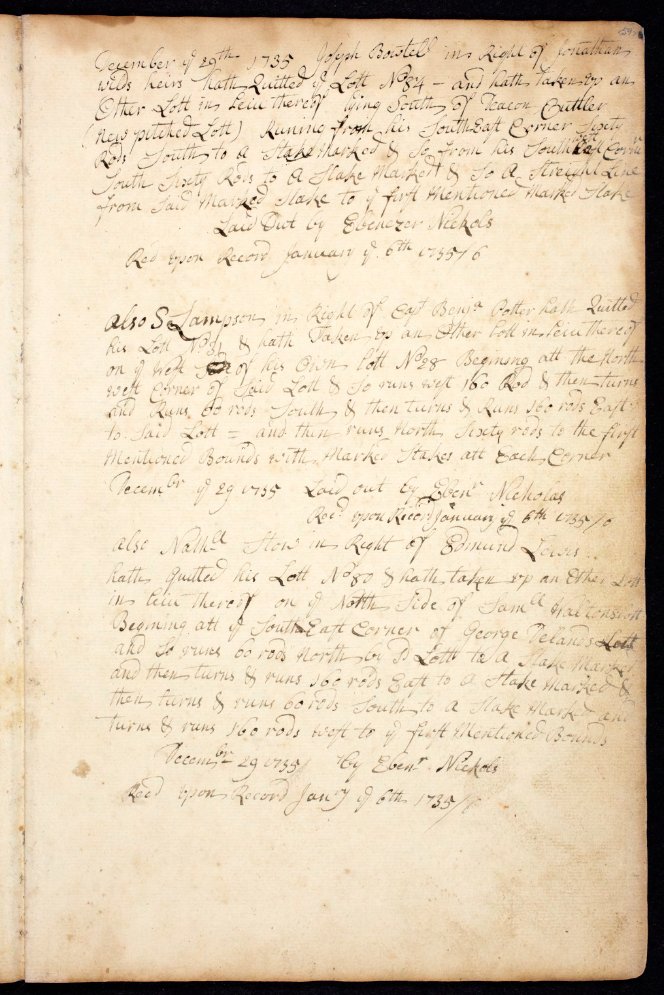 December ye 29th 1735 Joseph Bowtel in Right of Jonathan
Wilds heirs hath Quitted ye Lott No 84 - and hath taken up an
Other Lott in Leiu thereof lying South of Deacon Cuttler
(new pitched Lott) Runing from his South East Corner Sixty
Rods South to a Stake marked & So from his South West Corner
South Sixty Rods to A Stake Marked & So A Streight Line
from Said Marked Stake to ye first Mentioned Marked Stake
Laid Out by Ebenezer Nichols
Recd upon Record January ye 6th 1735/6
also S Lampson in Right of Benja Potter hath Quitted
his Lott & hath Taken up an Other lott in Leiu thereof
on ye West of his Own lott No 28 Begining att the North
west Corner of Said Lott & So runs west 160 Rod & then turns
and Runs 60 rods South & then turns & Runs 160 rods East
to Said Lott = and then runs North Sixty rods to the first
Mentioned Bounds with Marked Stakes att Each Corner
Decembr ye 29 1735 Laid out by Ebenr Nicholas
Recd upon Record January ye 6th 1735/6
also Nathll Stow in Right of Edmund Lewis
hath quitted his Lott No 80 & hath taken up an Other Lott
in Leiu thereof on ye North Side of Samll Waltons Lott
Begining att ye South East Corner of George Lott
and So runs 60 rods North by sd Lott to a Stake Marked
and then turns & runs 160 rods East to A Stake Marked &
then turns & runs 60 rods South to A Stake Marked and
turns & runs 160 rods west to ye first Mentioned Bounds
Decembr 29 1735/ by Ebenr Nichols
Recd upon Record Janry ye 6th 1735/6